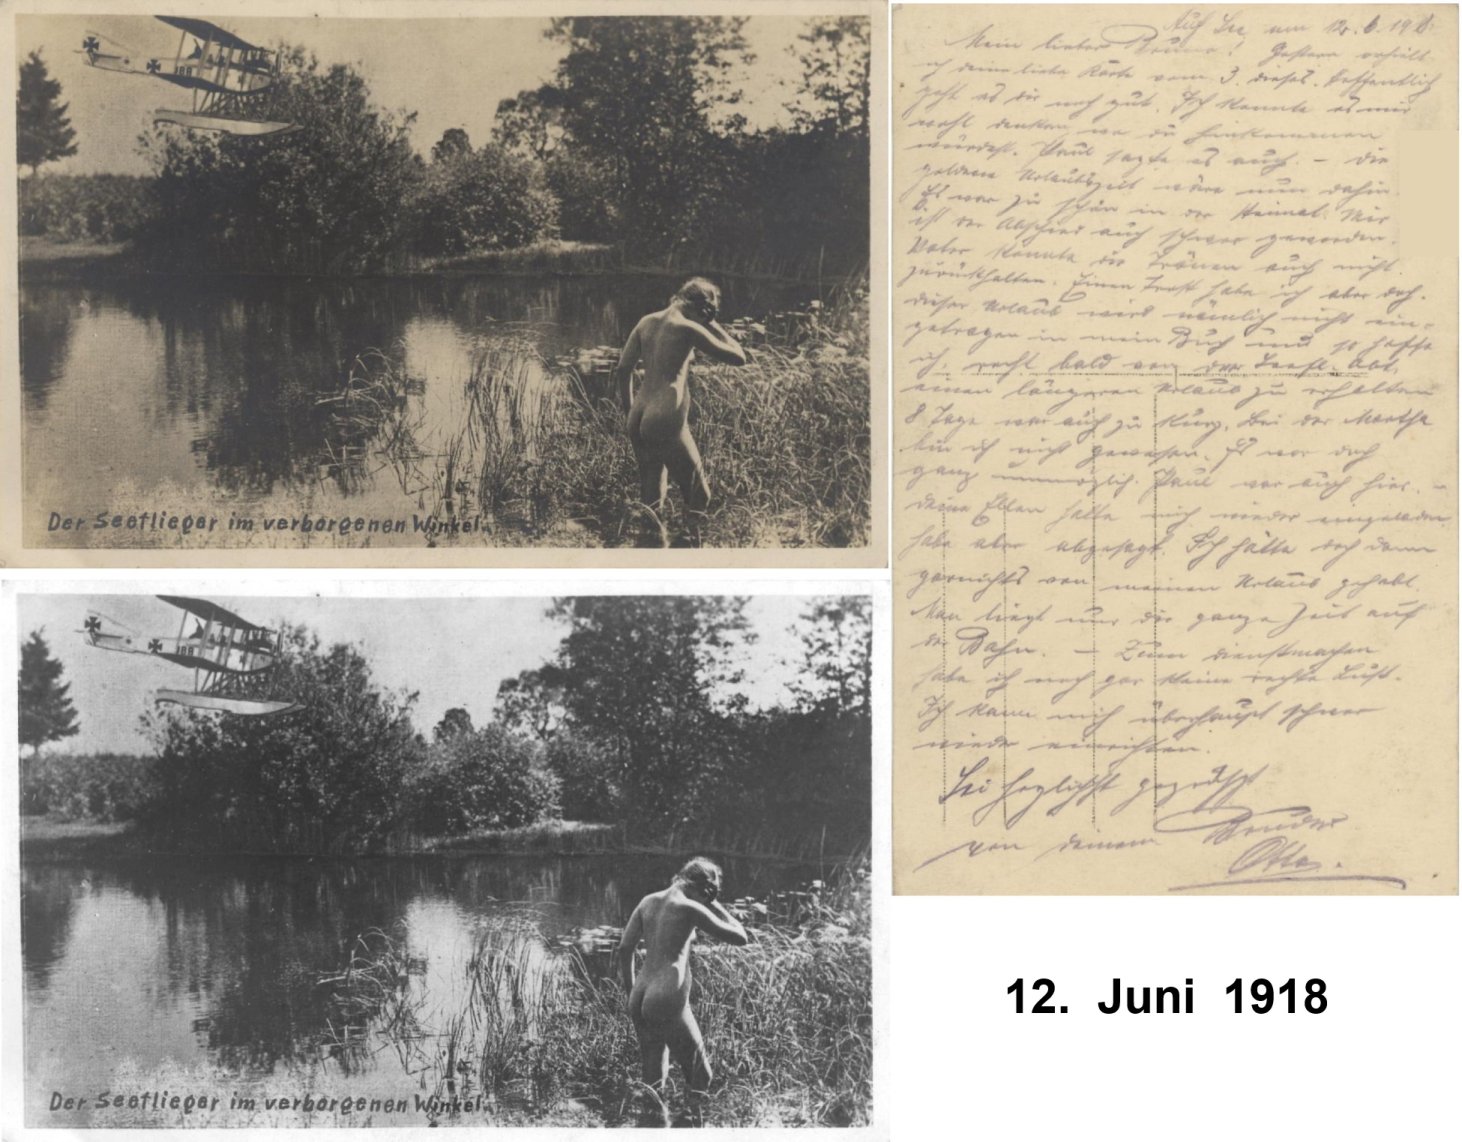 188
Der Seeflieger im verborgenen Winkel.
188
Der Seeflieger im verborgenen Winkel.
Auf See, am 12.6.1918.
Mein lieber Bruno! Gestern erhielt
ich deine liebe Karte vom 3. dieses. Hoffentlich
geht es dir noch gut. Ich konnte es mir
wohl denken, wo du hinkommen
würdest. Paul sagte es auch. – Die
goldene Urlaubszeit wäre nun dahin.
Es war zu schön in der Heimat. Mir
ist der Abschied auch schwer geworden.
Vater konnte die Tränen auch nicht
zurückhalten. Einen Trost habe ich aber doch.
dieser Urlaub wird nämlich nicht ein-
getragen in mein Buch und so hoffe
ich, recht bald von der Abt.
einen längeren Urlaub zu erhalten
8 Tage war auch zu kurz. Bei der Martha
bin ich nicht gewesen. Es war doch
ganz unmöglich. Paul war auch hier. –
deine Ellen hatte mich wieder eingeladen
habe aber abgesagt. Ich hätte doch dann
garnichts von meinem Urlaub gehabt.
Man liegt nur die ganze Zeit auf
der Bahn. – Zum dienstmachen
habe ich noch gar keine rechte Lust.
Ich kann mich überhaupt schwer
wieder einrichten.
Sei herzlichst gegrüßt
von deinem Bruder
Otto.
12. Juni 1918